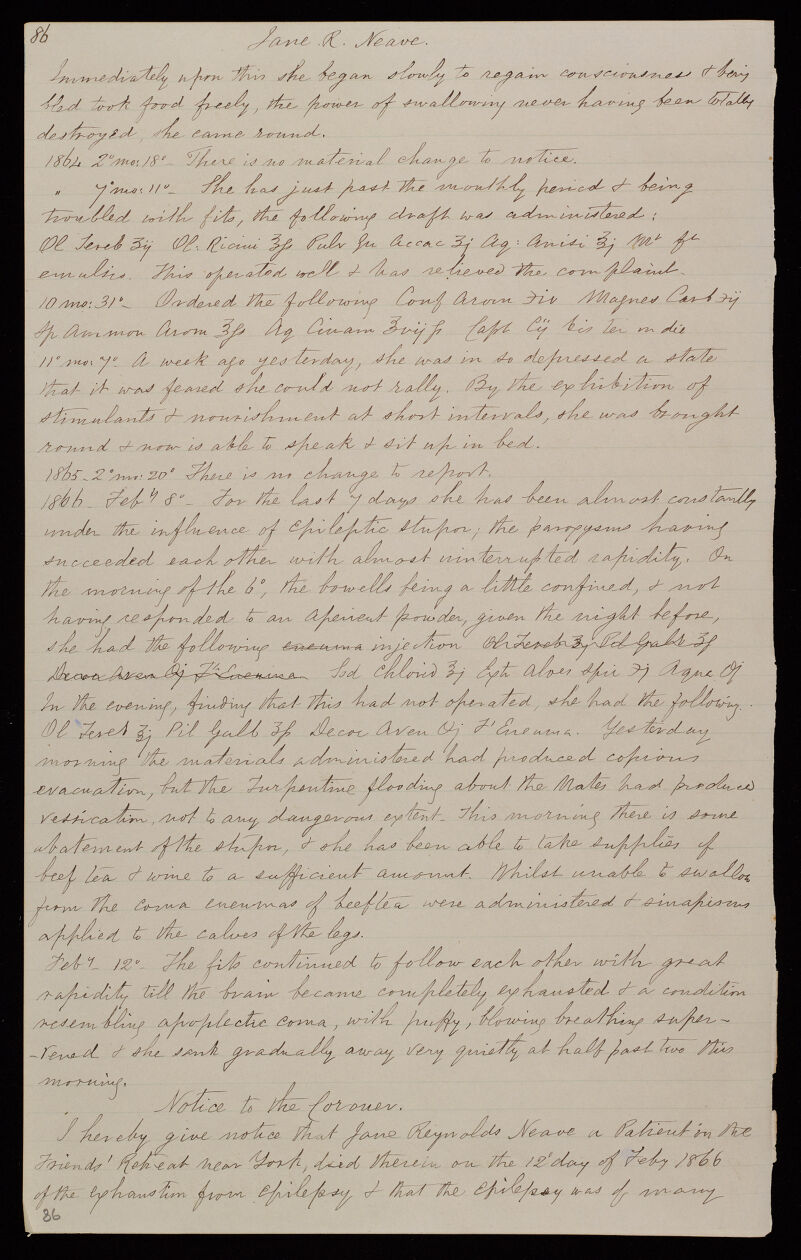 86
Jane R. Neave.
Immediately upon this she began slowly to regain consciousness & being
bled took food freely, the power of swallowing never having been totally
destroyed, she came round.
1864 2º mo: 18º - There is no material change to notice.
" 7º mo: 11º - She has just past the monthly period & being
troubled with fits, the following draft was administered:
Ol Tereb ʒij Ol: Ricini ℥ſs Pulv Gu Accac ʒj Aq: Anisi ℥j Mt ft
emulsio. This operated well & has relieved the complaint.
10 mo: 31º - Ordered the following Conf Arom ʒiv Magnes Carb ʒij
Sp Ammon Arom ℥ſs Aq Cinam ℥vijſs Capt Cij bis ter in die
11º mo. 7º - A week ago yesterday, she was in so depressed a state
that it was feared she could not rally. By the exhibition of
stimulants & nourishment at short intervals, she was brought
round & now is able to speak & sit up in bed.
1865 - 2º mo: 20º There is no change to report.
1866 - Feby 8º - For the last 7 days she has been almost constantly
under the influence of Epileptic stupor; the paroxysms having
succeeded each other with almost uninterrupted rapidity. On
the morning of the 6º, the bowells being a little confined, & not
having responded to an Aperient powder, given the night before,
she had the following enenma injection Ol Tereb ℥j Pil Galb ʒſs
Decoc Aven Oj Ft Enenma Sod Chlorid ℥j Extr Aloes spic ʒj Aquæ Oj
In the evening, finding that this had not operated, she had the following.
Ol Tereb ℥j Pil Galb ʒſs Decoc Aven Oj Ft Enenma. Yesterday
morning the materials administered had produced copious
evacuation, but the Turpentine flooding about the Nates had produced
vessication, not to any dangerous extent. This morning there is some
abatement of the stupor, & she has been able to take supplies of
beef tea & wine to a sufficient amount. Whilst unable to swallow
from the coma enenmas of beef tea were administered & sinapisms
applied to the calves of the legs.
Feby - 12º - The fits continued to follow each other with great
rapidity till the brain became completely exhausted & a condition
resembling apoplectic coma, with puffy, blowing breathing super-
-vened & she sank gradually away very quietly at half past two this
morning.
Notice to the Coroner.
I hereby give notice that Jane Reynolds Neave a Patient in the
Friends' Retreat near York, died therein on the 12th day of Feby 1866
of the exhaustion from Epilepsy & that the Epilepsy was of many
86